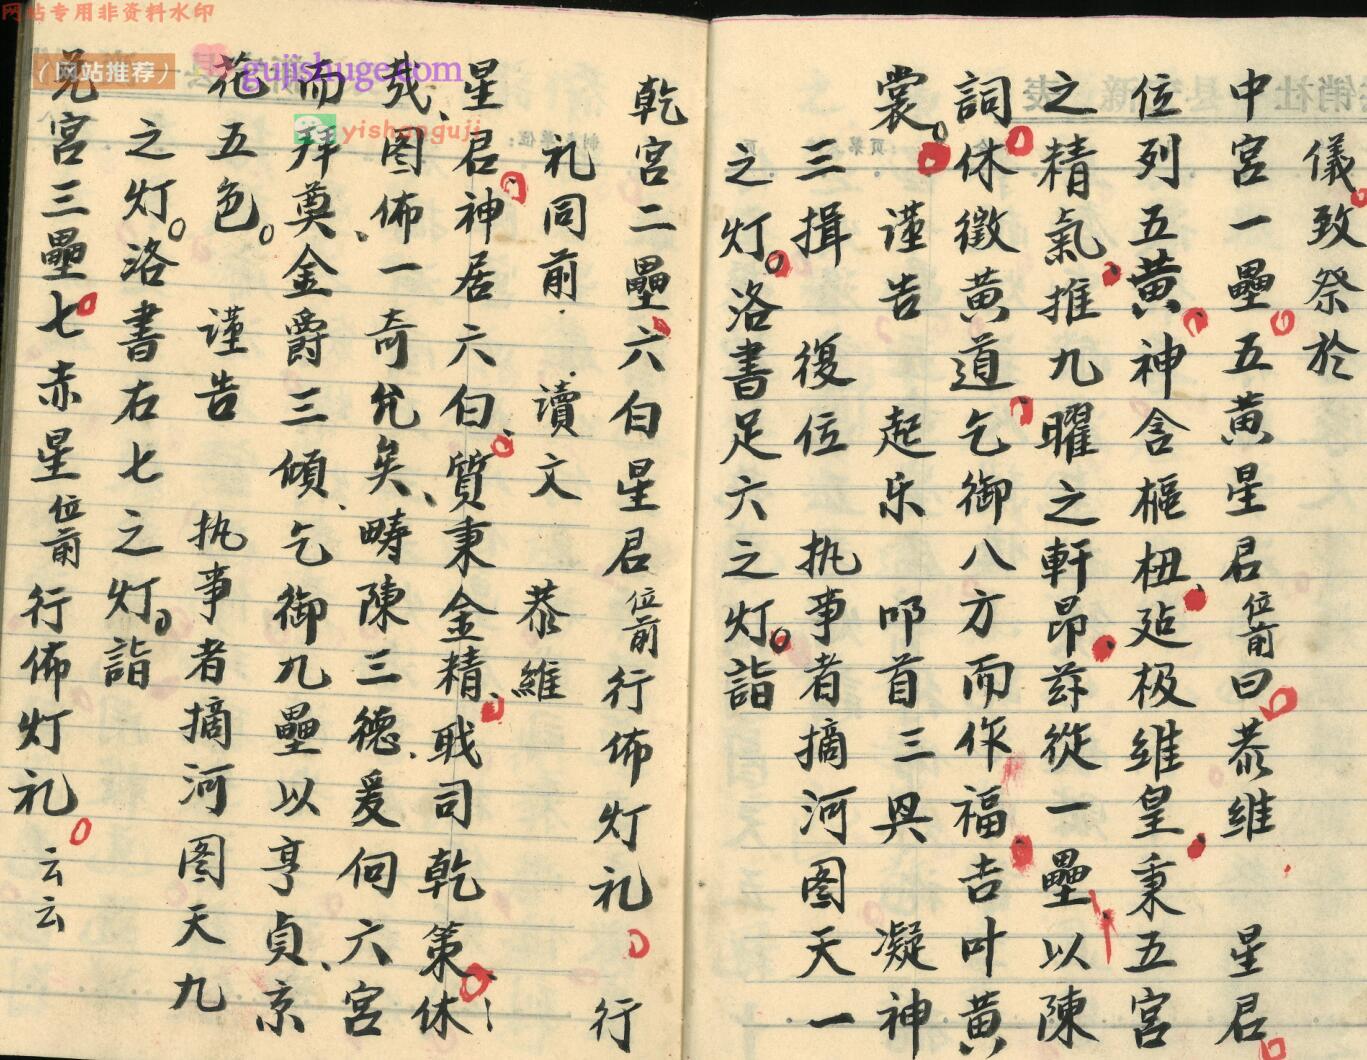 儀致祭於
中宮一壘五黃星君位前曰恭維 星君
位列五黃神含樞杻㢟极維皇秉五宮
之精氣推九曜之軒昂茲從一壘以陳
詞休徵黃道乞御八方而作福吉叶黃
裳 謹告 起乐 叩首三興 凝神
三揖 復位 执事者摘河图天一
之灯洛書足六之灯詣
乾宮二壘六白星君位前行佈灯礼 行
礼同前 讀文 恭維
星君神居六白質秉金精戝司乾策休
哉图佈一奇允矣疇陳三德爰伺六宮
而拜奠金爵三傾乞御九壘以亨貞京
花五色 谨告 执事者摘河图天九
之灯洛書右七之灯詣
兑宮三壘七赤星位前行佈灯礼 云云
网站专用非资料水印
(网站推荐)
gujishuge.com
yishanguji